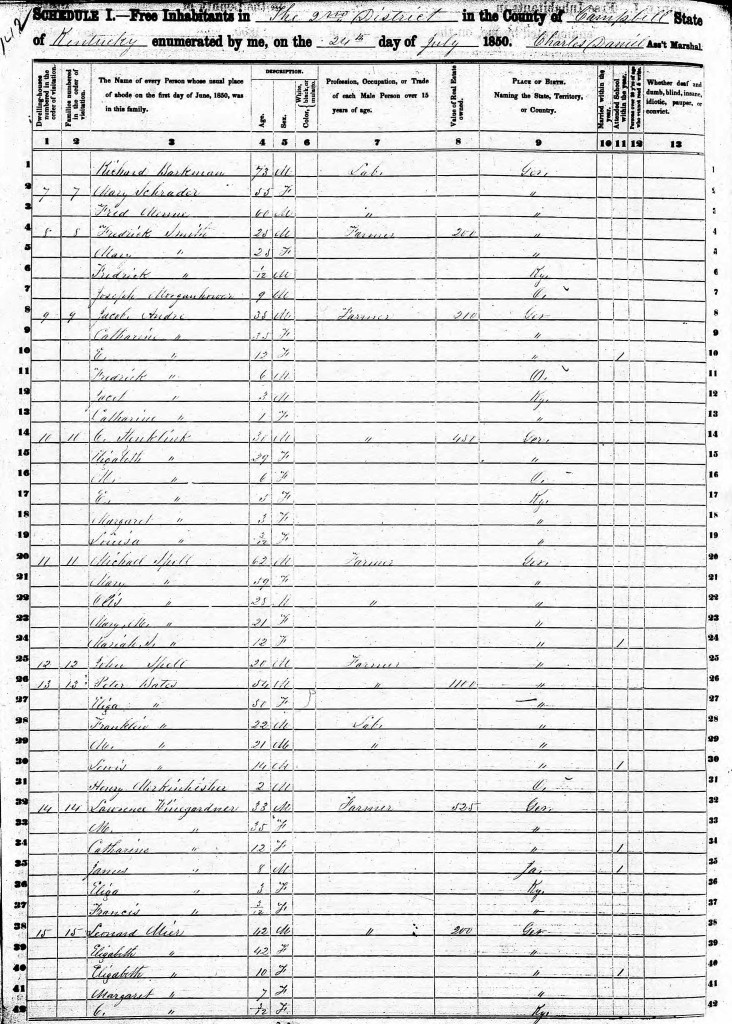 142
SCHEDULE I.—Free Inhabitants in The 2nd District in the County of Campbell State
of Kentucky enumerated by me, on the 24th day of July 1850. Charles Daniel Ass't Marshal.
Dwelling-houses numbered in the order of visitation. Families numbered in the order of visitation. The Name of every Person whose usual place of abode on the first day of June, 1850, was in this family. DESCRIPTION. Age. Sex. Color, White, black, or mulatto. Profession, Occupation, or Trade of each Male Person over 15 years of age. Value of Real Estate owned. PLACE OF BIRTH. Naming the State, Territory, or Country. Married within the year. Attended School within the year. Persons over 20 y'rs of age who cannot read & write. Whether deaf and dumb, blind, insane, idiotic, pauper, or convict.
1 2 3 4 5 6 7 8 9 10 11 12 13
1 Richard Barkman 73 M Lab. Ger. 1
2 7 7 Mary Schrader 55 F " 2
3 Fred 60 M " " 3
4 8 8 Fredrick Smith 28 M Farmer 200 " 4
5 Mary " 25 F " 5
6 Fredrick " /12 M Ky. 6
7 Joseph 9 M O. 7
8 9 9 Jacob Andre 38 M Farmer 210 Ger 8
9 Catharine " 35 F " 9
10 E. " 12 F " 1 10
11 Fredrick " 6 M O. 11
12 Jacob " 3 M Ky. 12
13 Catharine " 1 F " 13
14 10 10 C. 30 M " 450 Ger. 14
15 Elizabeth " 29 F " 15
16 M. " 6 F O. 16
17 E. " 5 F Ky. 17
18 Margaret " 3 F " 18
19 Louisa " 3/12 F " 19
20 11 11 Michael Spell 62 M Farmer Ger. 20
21 Mary " 59 F " 21
22 " 25 M " " 22
23 Mary M. " 21 F " 23
24 Mariah S. " 12 F " 1 24
25 12 12 John Spell 20 M Farmer " 25
26 13 13 Peter Bates 54 M " 1100 " 26
27 Eliza " 50 F " 27
28 Franklin " 22 M Lab. " 28
29 M. " 21 M " " 29
30 Lewis " 14 M " 1 30
31 Henry 2 M O. 31
32 14 14 Lawrence Winegardner 33 M Farmer 525 Ger. 32
33 M. " 35 F " 33
34 Catharine " 12 F " 1 34
35 James " 8 M 1 35
36 Eliza " 3 F Ky. 36
37 Francis " 3/12 F " 37
38 15 15 Leonard Mier 42 M " 200 Ger 38
39 Elizabeth " 42 F " 39
40 Elizabeth " 10 F " 1 40
41 Margaret " 7 F " 41
42 C. " /12 F Ky. 42